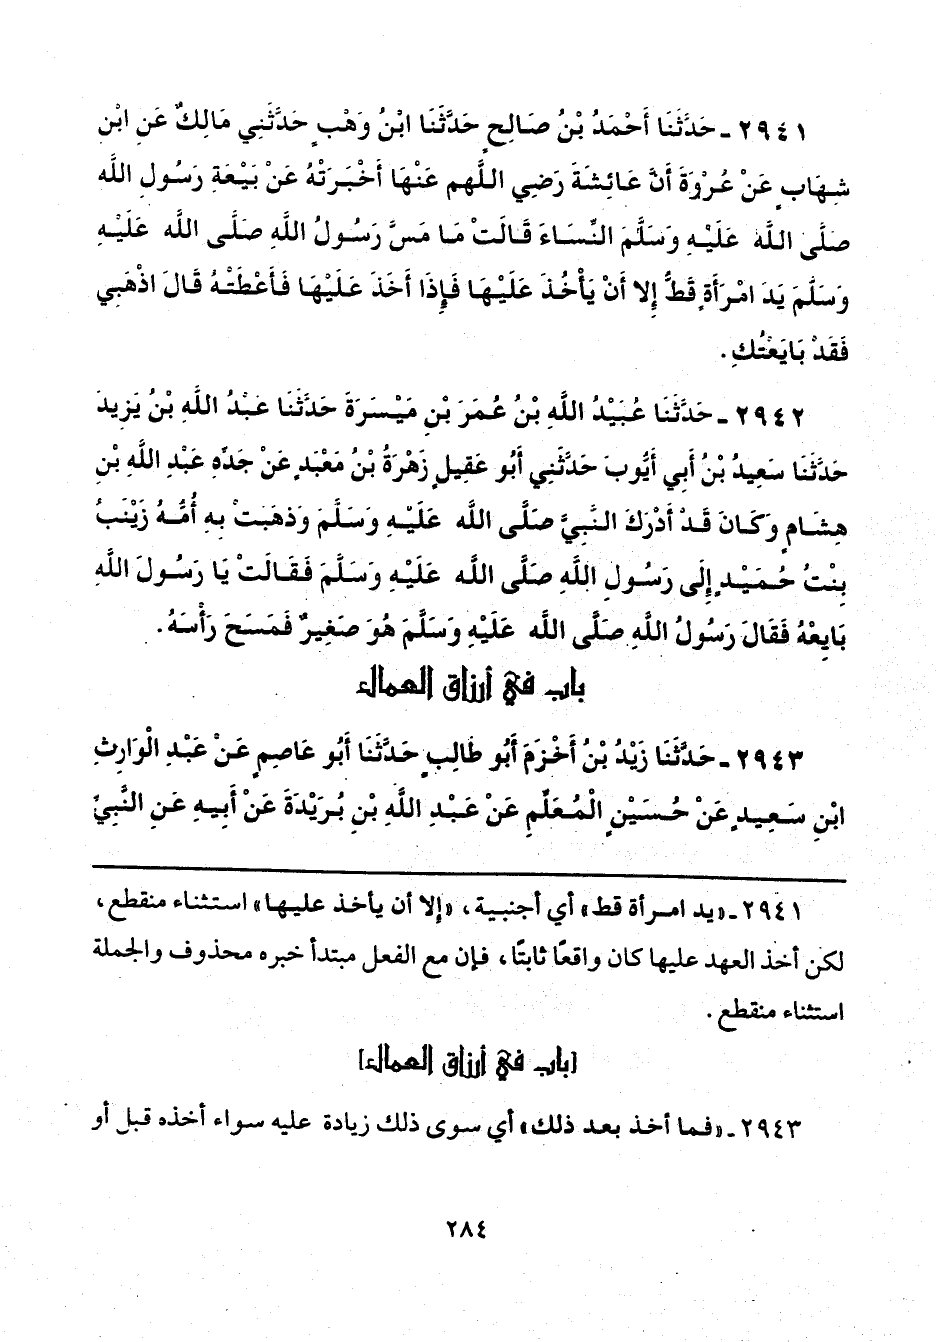 ٢٩٤١ ـ حَدَّثَنَا أَحْمَدُ بْنُ صَالِحٍ حَدَّثَنَا ابْنُ وَهْبٍ حَدَّثَنِي مَالِكٌ عَنِ ابْنِ
شِهَابٍ عَنْ عُرْوَةَ أَنَّ عَائِشَةَ رَضِي اللَّهم عَنْهَا أَخْبَرَتْهُ عَنْ بَيْعَةِ رَسُولِ اللَّهِ
صَلَّى اللَّهُ عَلَيْهِ وَسَلَّمَ النِّسَاءَ قَالَتْ مَا مَسَّ رَسُولُ اللَّهِ صَلَّى اللَّه عَلَيْهِ
وَسَلَّمَ يَدَ امْرَأَةٍ قَطُّ إِلا أَنْ يَأْخُذَ عَلَيْهَا فَإِذَا أَخَذَ عَلَيْهَا فَأَعْطَتْهُ قَالَ اذْهَبِي
فَقَدْ بَايَعْتُكِ.
٢٩٤٢ ـ حَدَّثَنَا عُبَيْدُ اللَّهِ بْنُ عُمَرَ بْنِ مَيْسَرَةَ حَدَّثَنَا عَبْدُ اللَّهِ بْنُ يَزِيدَ
حَدَّثَنَا سَعِيدُ بْنُ أَبِي أَيُّوبَ حَدَّثَنِي أَبُو عَقِيلٍ زَهْرَةُ بْنُ مَعْبَدٍ عَنْ جَدِّهِ عَبْدِ اللَّهِ بْنِ
هِشَامٍ وَكَانَ قَدْ أَدْرَكَ النَّبِيَّ صَلَّى اللَّه عَلَيْهِ وَسَلَّمَ وَذَهَبَتْ بِهِ أُمُّهُ زَيْنَبُ
بِنْتُ حُمَيْدٍ إِلَى رَسُولِ اللَّهِ صَلَّى اللَّه عَلَيْهِ وَسَلَّمَ فَقَالَتْ يَا رَسُولَ اللَّهِ
بَايِعْهُ فَقَالَ رَسُولُ اللَّهِ صَلَّى اللَّه عَلَيْهِ وَسَلَّمَ هُوَ صَغِيرٌ فَمَسَحَ رَأْسَهُ.
باب في أرزاق العمال
٢٩٤٣ ـ حَدَّثَنَا زَيْدُ بْنُ أَخْزَمَ أَبُو طَالِبٍ حَدَّثَنَا أَبُو عَاصِمٍ عَنْ عَبْدِ الْوَارِثِ
ابْنِ سَعِيدٍ عَنْ حُسَيْنٍ الْمُعَلِّمِ عَنْ عَبْدِ اللَّهِ بْنِ بُرَيْدَةَ عَنْ أَبِيهِ عَنِ النَّبِيِّ
٢٩٤١ ـ «يد امرأة قط» أي أجنبية، «إلا أن يأخذ عليها» استثناء منقطع،
لكن أخذ العهد عليها كان واقعًا ثابتًا، فإن مع الفعل مبتدأ خبره محذوف والجملة
استثناء منقطع.
[باب في أرزاق العمال]
٢٩٤٣ ـ «فما أخذ بعد ذلك» أي سوى ذلك زيادة عليه سواء أخذه قبل أو
٢٨٤